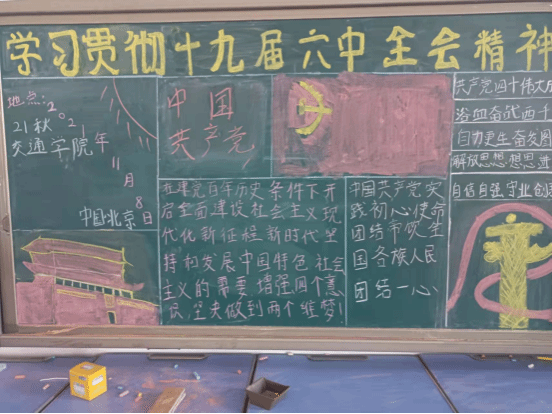 学习贯彻十九届六中全会精神
地点:2021年11月8日
21秋
交通学院
中国北京
中国
共产党
在建党百年历史条件下开
启全面建设社会主义现
代化新征程新时代坚
持和发展中国特色社会
主义的需要增强四个意
识,坚决做到两个维
中国共产党实
践初心使命
团结
国各族人民
团结一心
共产党
浴血奋战
自力更生奋发图
解放思想
自信自强守